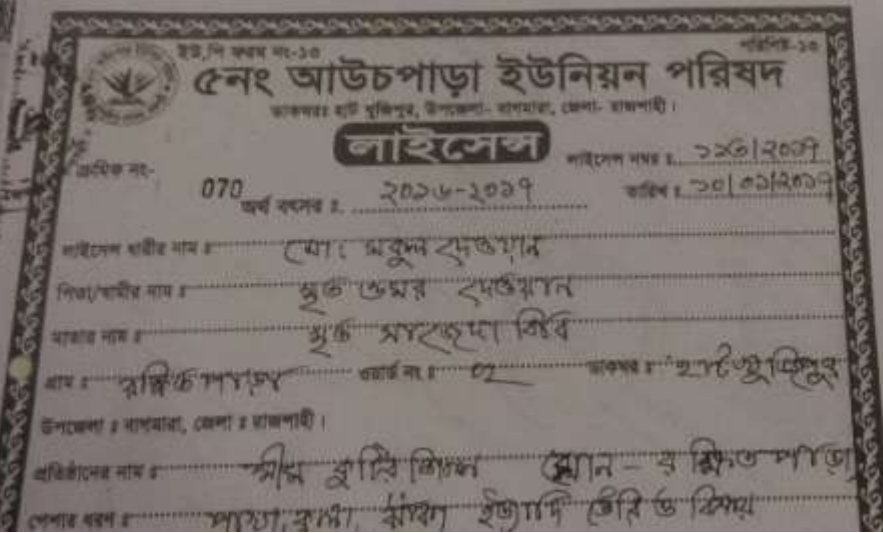 ইউ,পি ফরম নং-১৩ পরিশিষ্ট-১০
৫নং আউচপাড়া ইউনিয়ন পরিষদ
ডাকঘরঃ হাট খুজিপুর, উপজেলা- বাগমারা, জেলা- রাজশাহী।
লাইসেন্স
ক্রমিক নং- লাইসেন্স নম্বর ঃ ১২৩/২০১৭
070 অর্থ বৎসর ঃ ২০১৬-২০১৭ তারিখ ঃ ১০/০১/২০১৭
লাইসেন্স ধারীর নাম ঃ মোঃ মকুল দেওয়ান
পিতা/স্বামীর নাম ঃ মৃত ওমর দেওয়ান
মাতার নাম ঃ মৃত বিবি
গ্রাম ঃ রক্ষিত পাড়া ওয়ার্ড নং ঃ ০২ ডাকঘর ঃ হাট খুজিপুর
উপজেলা ঃ বাগমারা, জেলা ঃ রাজশাহী।
প্রতিষ্ঠানের নাম ঃ কুটির শিল্প স্থান - রক্ষিত পাড়া
পেশার ধরন ঃ পাখা, কুলা, ইত্যাদি তৈরি ও বিক্রয়